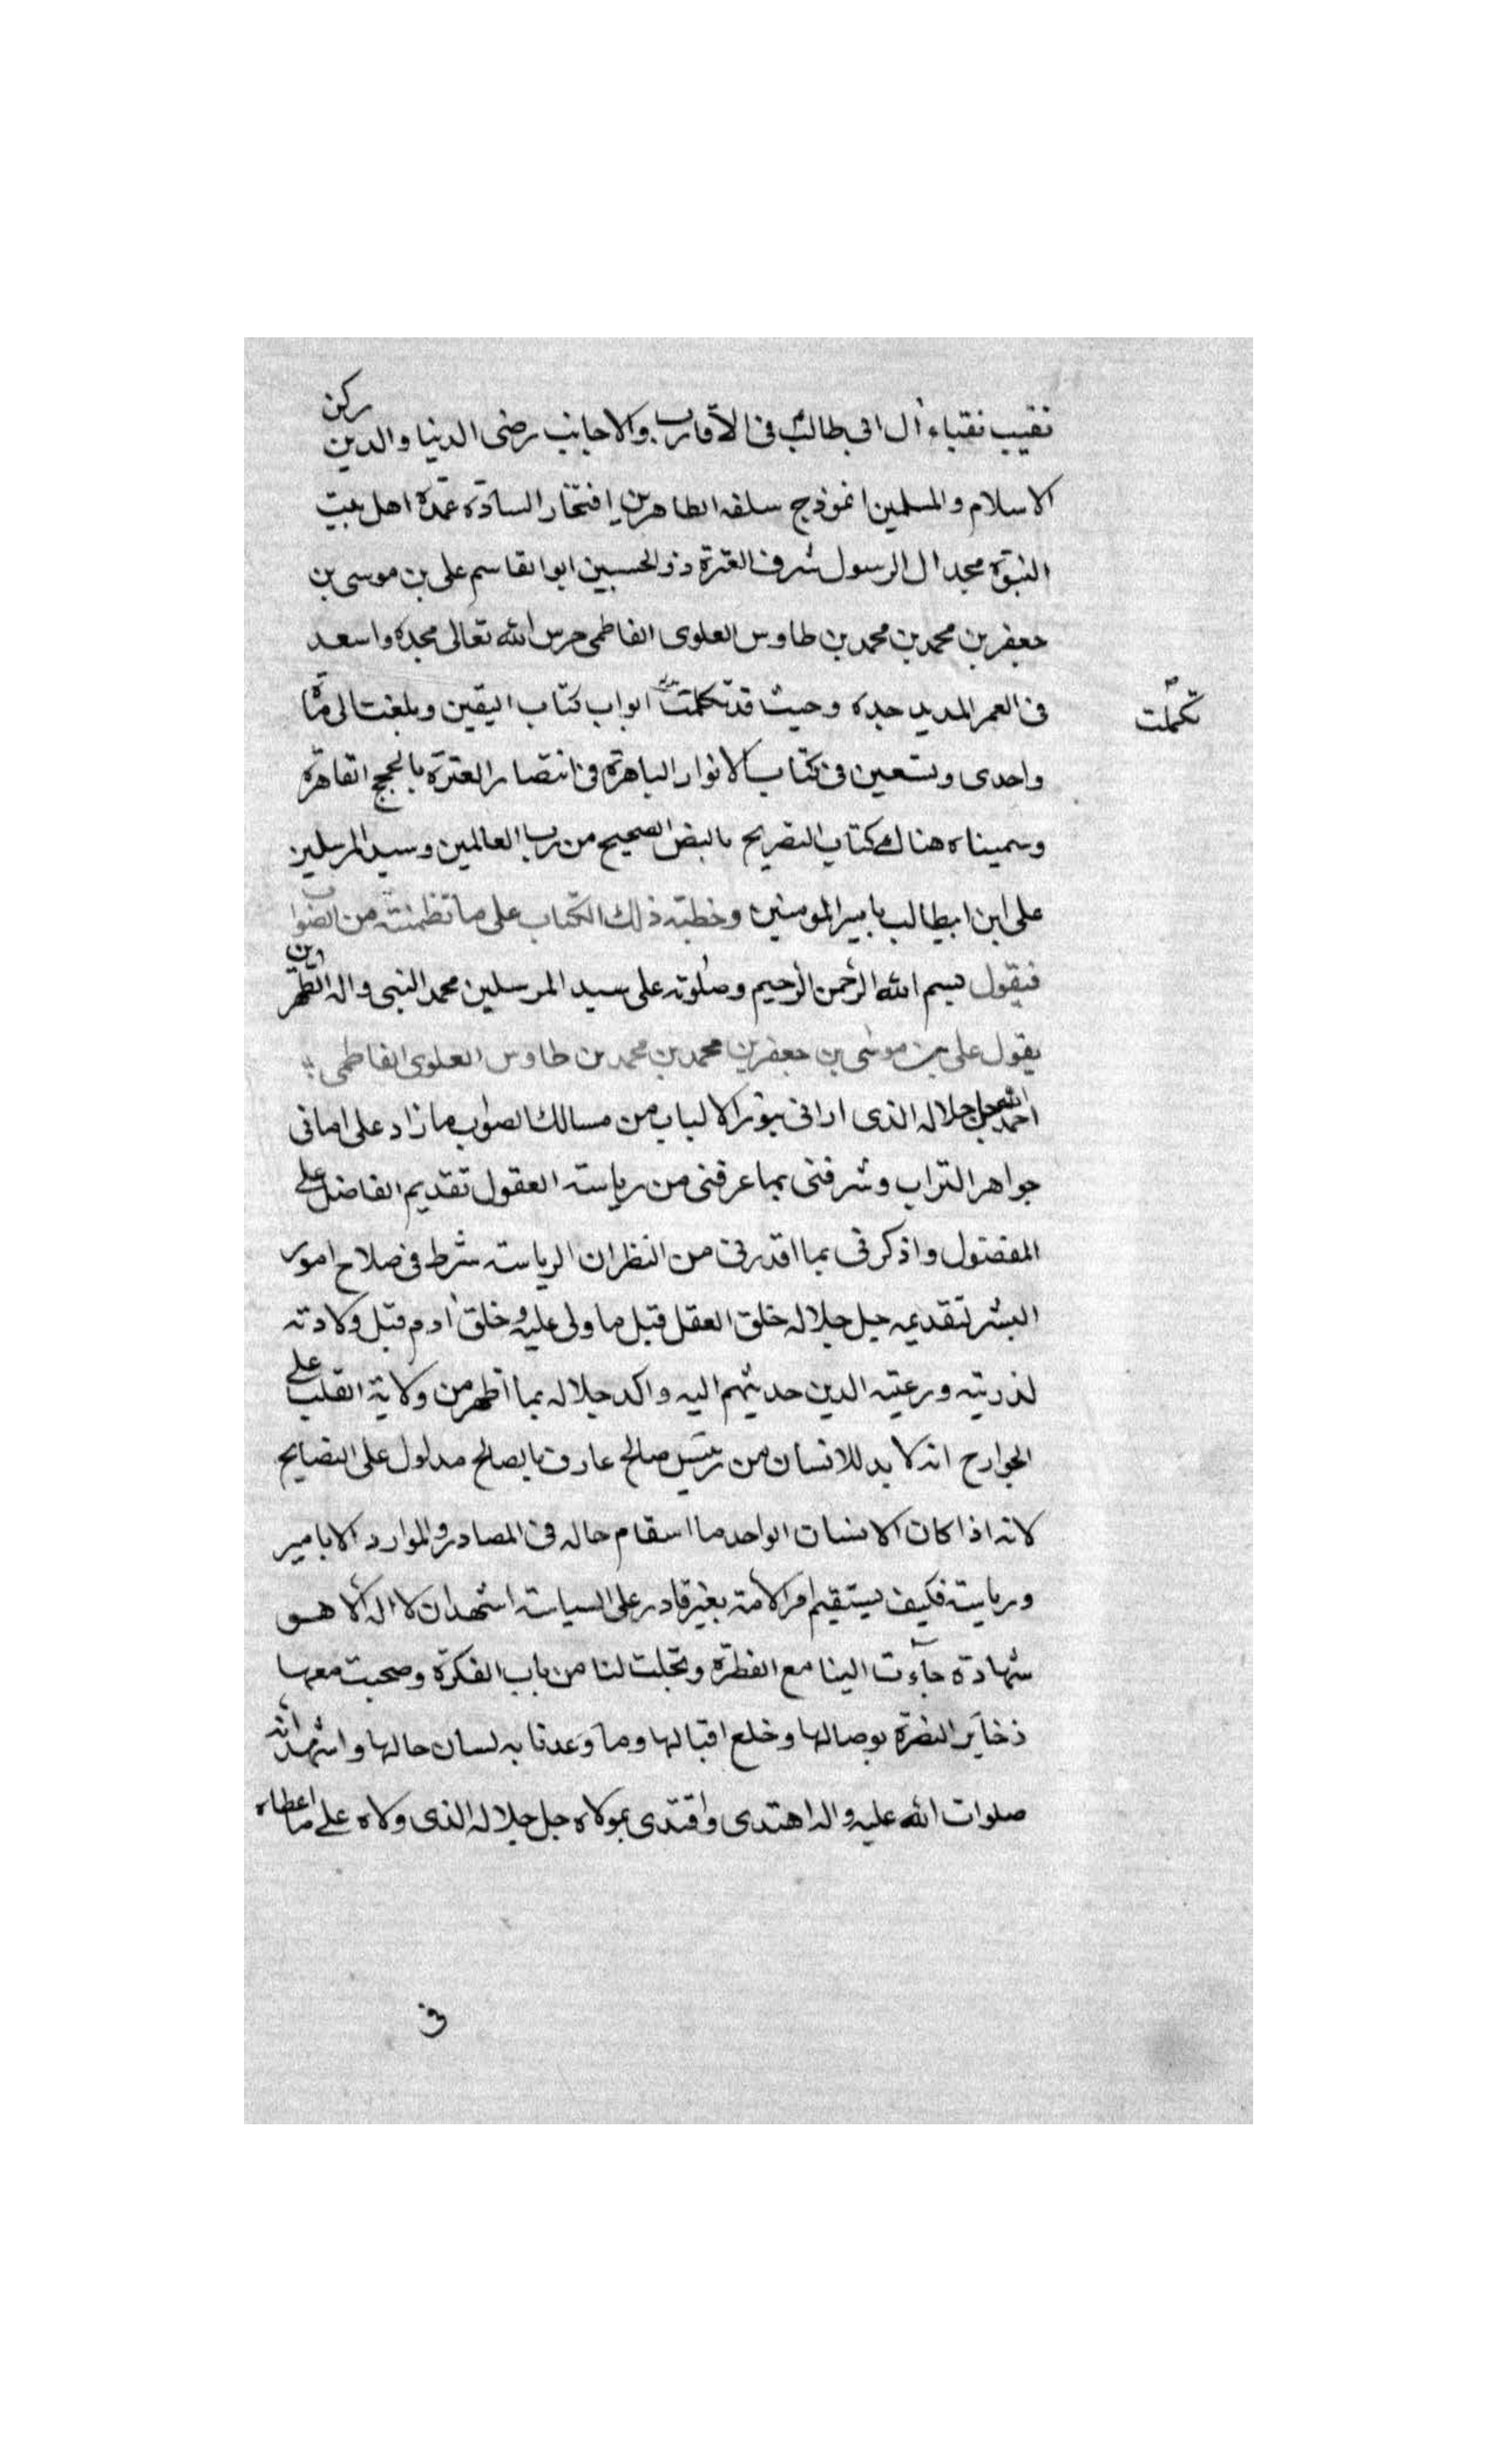 نقيب نقباء آل ابي طالب في الاقارب والاجانب رضى الدنيا والدين ركن
الاسلام والمسلمين انموذج سلفه الطاهرين افتخار السادة عمدة اهل بيت
النبوة مجد ال الرسول شرف العترة ذو الحسبين ابو القاسم على بن موسى بن
جعفر بن محمد بن محمد بن طاوس العلوى الفاطمى حرس الله تعالى مجده واسعد
فى العمر المديد جده وحيث قد تكلمت ابواب كتاب اليقين وبلغت الى
تكملت
واحدى وتسعين فى كتاب الانوار الباهرة فى انتصار العترة بالحجج القاهرة
وسميناه هناك كتاب التصريح بالنص الصحيح من رب العالمين وسيد المرسلين
على ابن ابيطالب بامير المومنين وخطبته ذلك الكتاب على ما تظمنته من الصواب
فيقول بسم الله الرحمن الرحيم وصلوته على سيد المرسلين محمد النبى واله الطهرين
يقول على بن موسى بن جعفر بن محمد بن محمد بن طاوس العلوى الفاطمى
احمد الله جل جلاله الذى ارانى بنور الالباب من مسالك الصواب ما زاد على امانى
جواهر التراب وشرفنى بما عرفنى من رياسته العقول تقديم الفاضل على
المفضول واذكرنى بما اقدرنى من النظر ان الرياسته شرط فى صلاح امور
البشر لتقديمه جل جلاله خلق العقل قبل ما ولى عليه وخلق آدم قبل ولادته
لذريته ورعيته الدين حديثهم اليه واكد جلاله بما اظهر من ولاية القلب على
الجوارح انه لا بد للانسان من رئيس صالح عارف بالصالح مدلول على النصايح
لانه اذا كان الانسان الواحد ما اسقام حاله فى المصادر والموارد الا بامير
ورياسته فكيف يستقيم امر الامته بغير قادر على السياسته اشهد ان لا اله الا هو
شهادة جآءت الينا مع الفطرة وتجلت لنا من باب الفكرة وصحبت معها
ذخاير النضرة بوصالها وخلع اقبالها وما وعدنا به لسان حالها واشهد انه
صلوات الله عليه واله اهتدى واقتدى بمولاه جل جلاله الذى ولاه على ما اعطاه
فى